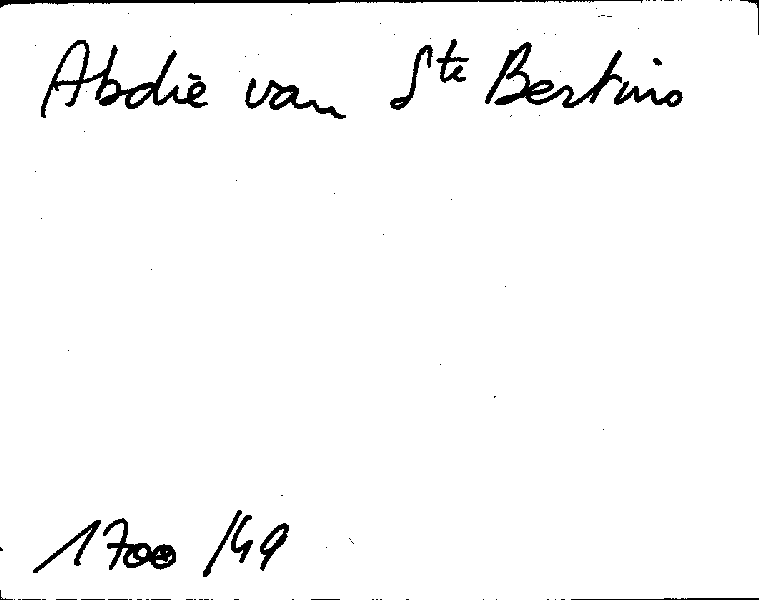 Abdië van Ste Bertins
1700 /49